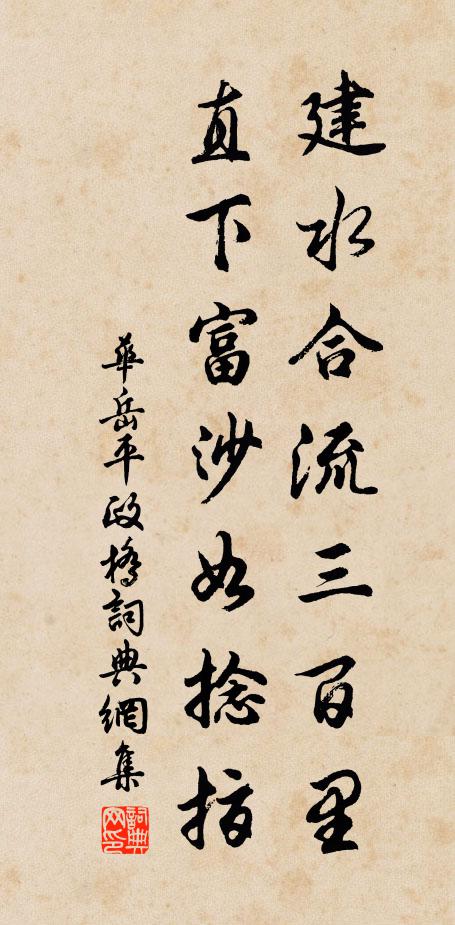 建水合流三百里
直下富沙如捻指
華岳平政橋詞典網集
詞典网印